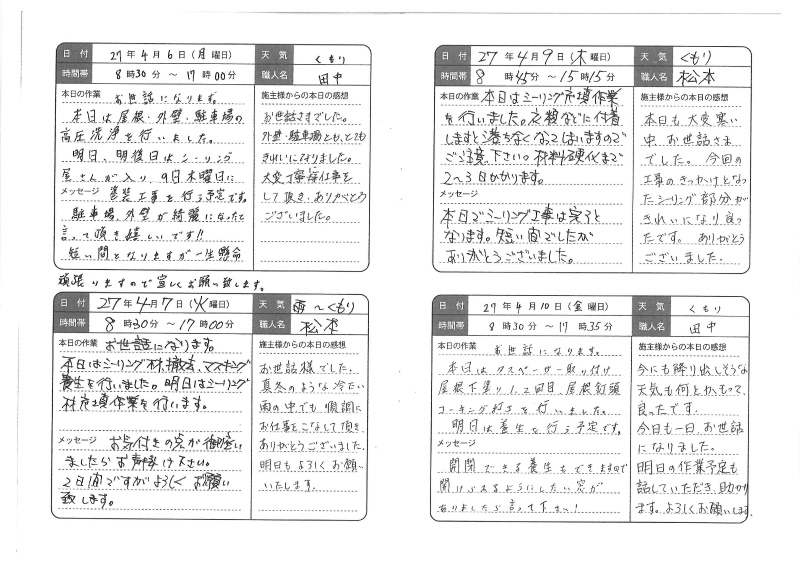 日付 27年4月6日(月曜日) 天気 くもり
時間帯 8時30分 ～17時00分 職人名 田中
本日の作業 お世話になります。
本日は屋根・外壁・駐車場の
高圧洗浄を行いました。
明日、明後日はシーリング
屋さんが入り、9日木曜日に
メッセージ 塗装工事を行う予定です。
駐車場、外壁が綺麗になったと
言って頂き嬉しいです!!
短い間となりますが一生懸命
頑張りますので宜しくお願い致します。
施主様からの本日の感想
お世話さまでした。
外壁・駐車場とも、とても
きれいになりました。
大変丁寧な仕事を
して頂き、ありがとう
ございました。
日付 27年4月7日(火曜日) 天気 雨～くもり
時間帯 8時30分 ～17時00分 職人名 松本
本日の作業 お世話になります。
本日はシーリング材撤去、マスキング
養生を行いました。明日はシーリング
材充填作業を行います。
メッセージ お気付きの点が御座い
ましたらお声掛け下さい。
2日間ですがよろしくお願い
致します。
施主様からの本日の感想
お世話様でした。
真冬のような冷たい
雨の中でも、順調に
お仕事をこなして頂き、
ありがとうございました。
明日もよろしくお願い
いたします。
日付 27年4月9日(木曜日) 天気 くもり
時間帯 8時45分 ～15時15分 職人名 松本
本日の作業 本日はシーリング充填作業
を行いました。衣類などに付着
しますと落ちなくなってしまいますので
ご注意下さい。材料硬化まで
2～3日かかります。
メッセージ
本日でシーリング工事は完了と
なります。短い間でしたが
ありがとうございました。
施主様からの本日の感想
本日も大変寒い
中、お世話さま
でした。今回の
工事のきっかけとなっ
たシーリング部分が
きれいになり良っ
たです。ありがとう
ございました。
日付 27年4月10日(金曜日) 天気 くもり
時間帯 8時30分 ～17時35分 職人名 田中
本日の作業 お世話になります。
本日はタスペーサー取り付け
屋根下塗り1,2回目、屋根釘頭
コーキング打ちを行いました。
明日は養生を行う予定です。
メッセージ
開閉できる養生もできますので
開けれるようにしたい窓が
ありましたら言って下さい!
施主様からの本日の感想
今にも降り出しそうな
天気も何とかもって、
良ったです。
今日も一日、お世話
になりました。
明日の作業予定も
話していただき、助かり
ます。よろしくお願いします。